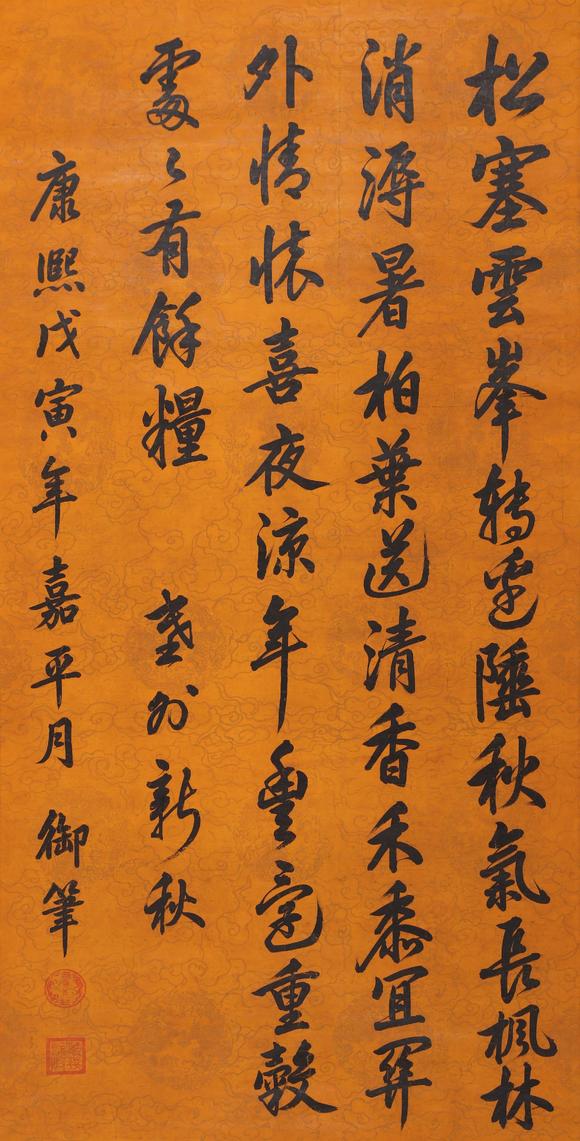 松塞雲峯轉邊陲秋氣長楓林
消溽暑柏葉送清香禾黍宜關
外情懷喜夜涼年豐重穀
處々有餘糧 塞外新秋
康熙戊寅年嘉平月 御筆